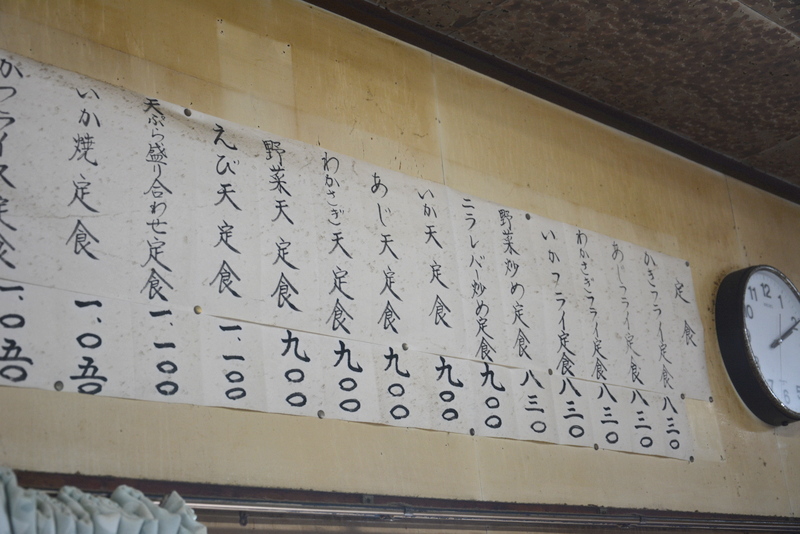 定食
かきフライ定食 八三〇
あじフライ定食 八三〇
わかさぎフライ定食 八三〇
いかフライ定食 八三〇
野菜炒め定食 八三〇
ニラレバー炒め定食 九〇〇
いか天定食 九〇〇
あじ天定食 九〇〇
わかさぎ天定食 九〇〇
野菜天定食 九〇〇
えび天定食 一.一〇〇
天ぷら盛り合わせ定食 一.一〇〇
いか焼定食 一.〇五〇
かつライス定食 一.〇五〇
11 12 1 2